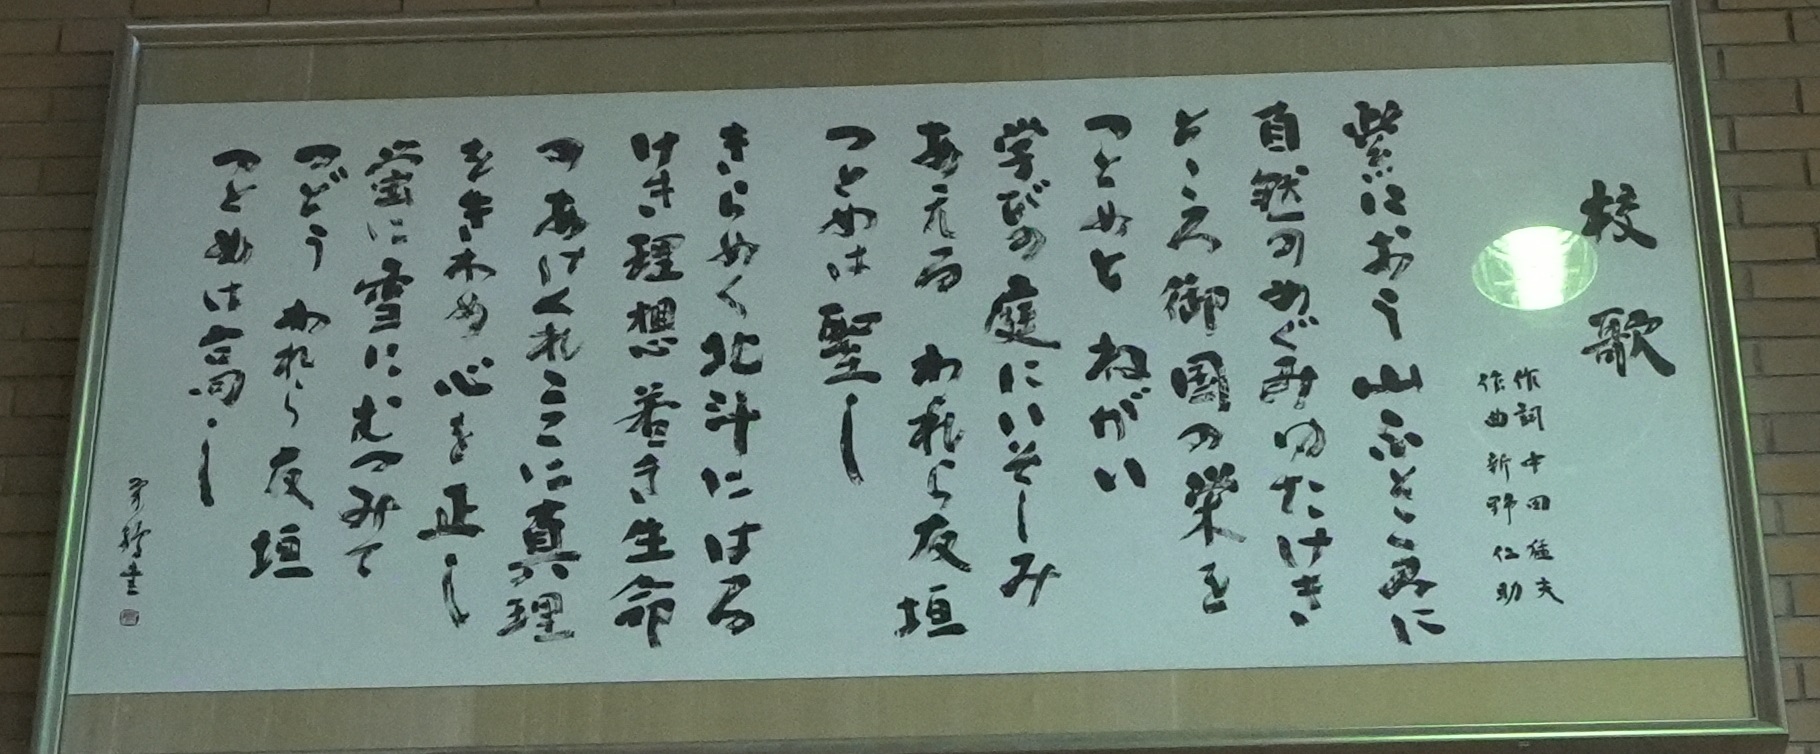 校歌
作詞 中田 猛夫
作曲 新野 仁助
紫におう山ふところに
自然のめぐみゆたけき
とゝろ御国の栄を
つとめと ねがい
学びの庭にいそしみ
あえる われら友垣
つとめは聖し
きらめく北斗にはる
けき理想 若き生命
のあけくれここに真理
をきわめ心を正し
蛍に雪にむつみて
つどう われら友垣
つとめは高し